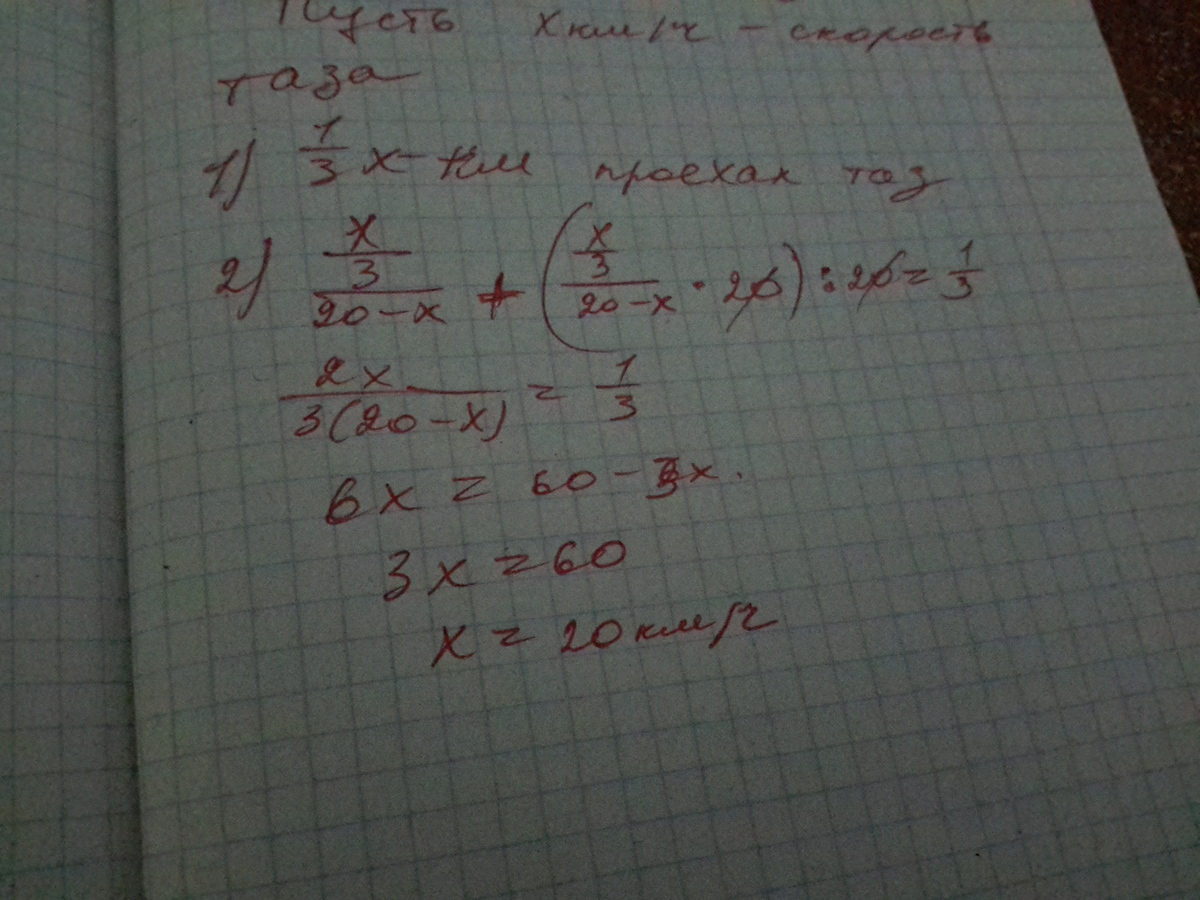 Пусть x км/ч - скорость
таза
1) 1/3 x - км проехал таз
2) (x/3)/(20-x) + ((x/3)/(20-x) · 20) : 20 = 1/3
2x/(3(20-x)) = 1/3
6x = 60 - 3x.
3x = 60
x = 20 км/ч